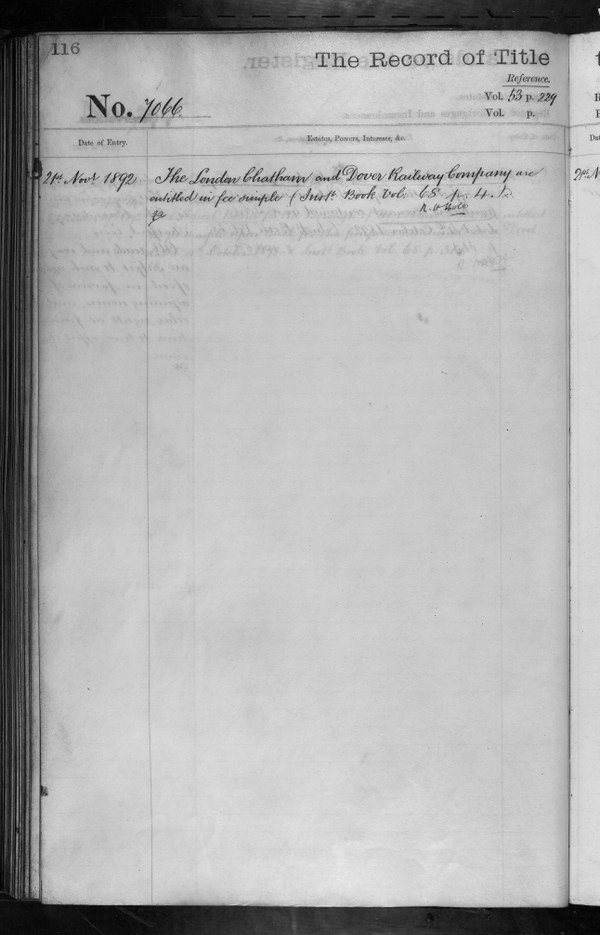 116
The Record of Title
Reference.
No. 7066.
Vol. 53 p. 229
Vol. p.
Date of Entry.
Estates, Powers, Interests, &c.
21st Novr 1892
The London Chatham and Dover Railway Company are
entitled in fee simple (Instt Book Vol. 68 p. 4.